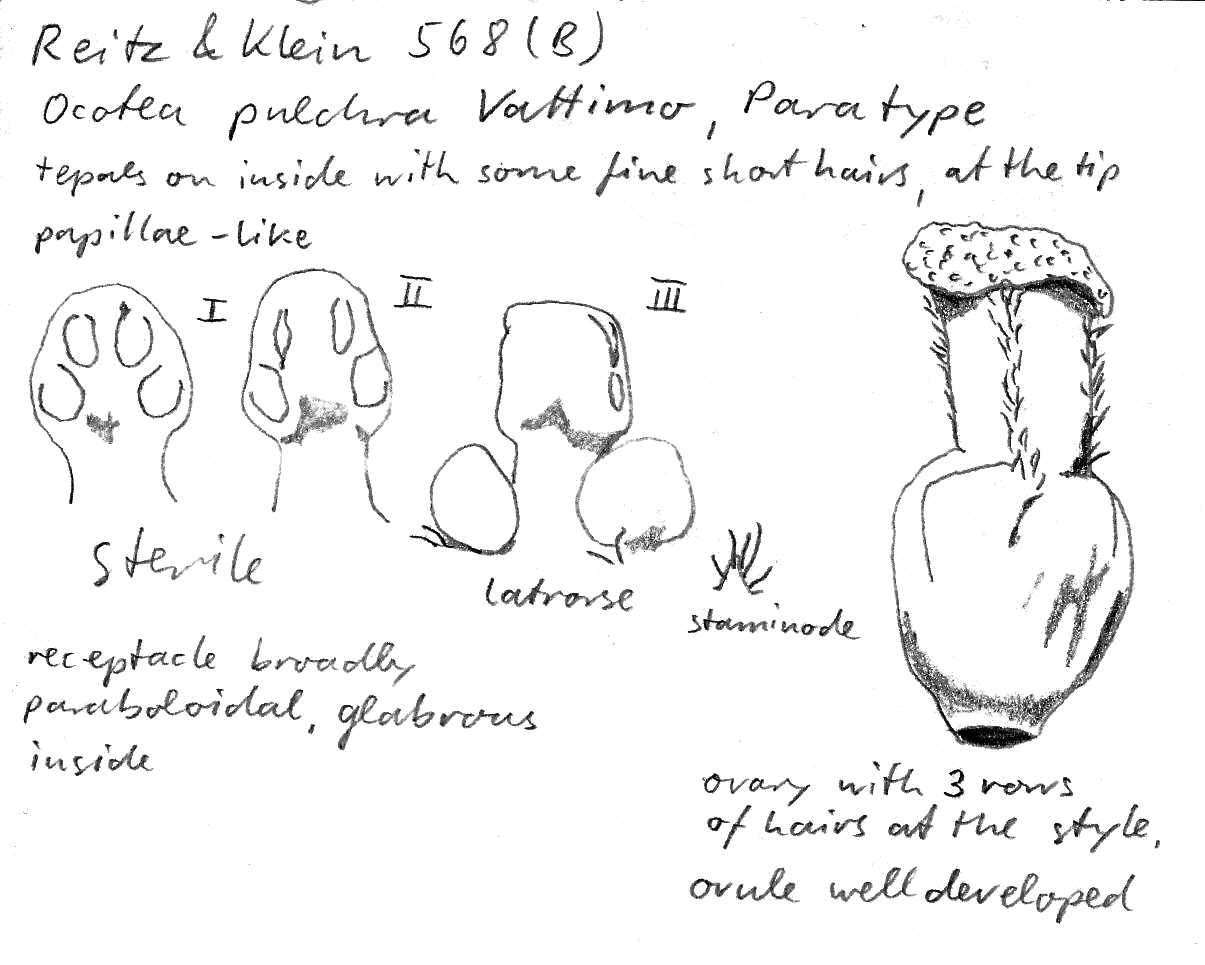 Reitz & Klein 568 (B)
Ocotea pulchra Vattimo, Paratype
tepals on inside with some fine short hairs, at the tip
papillae-like
I
II
III
sterile
latrorse
staminode
receptacle broadly
paraboloidal, glabrous
inside
ovary with 3 rows
of hairs at the style,
ovule well developed